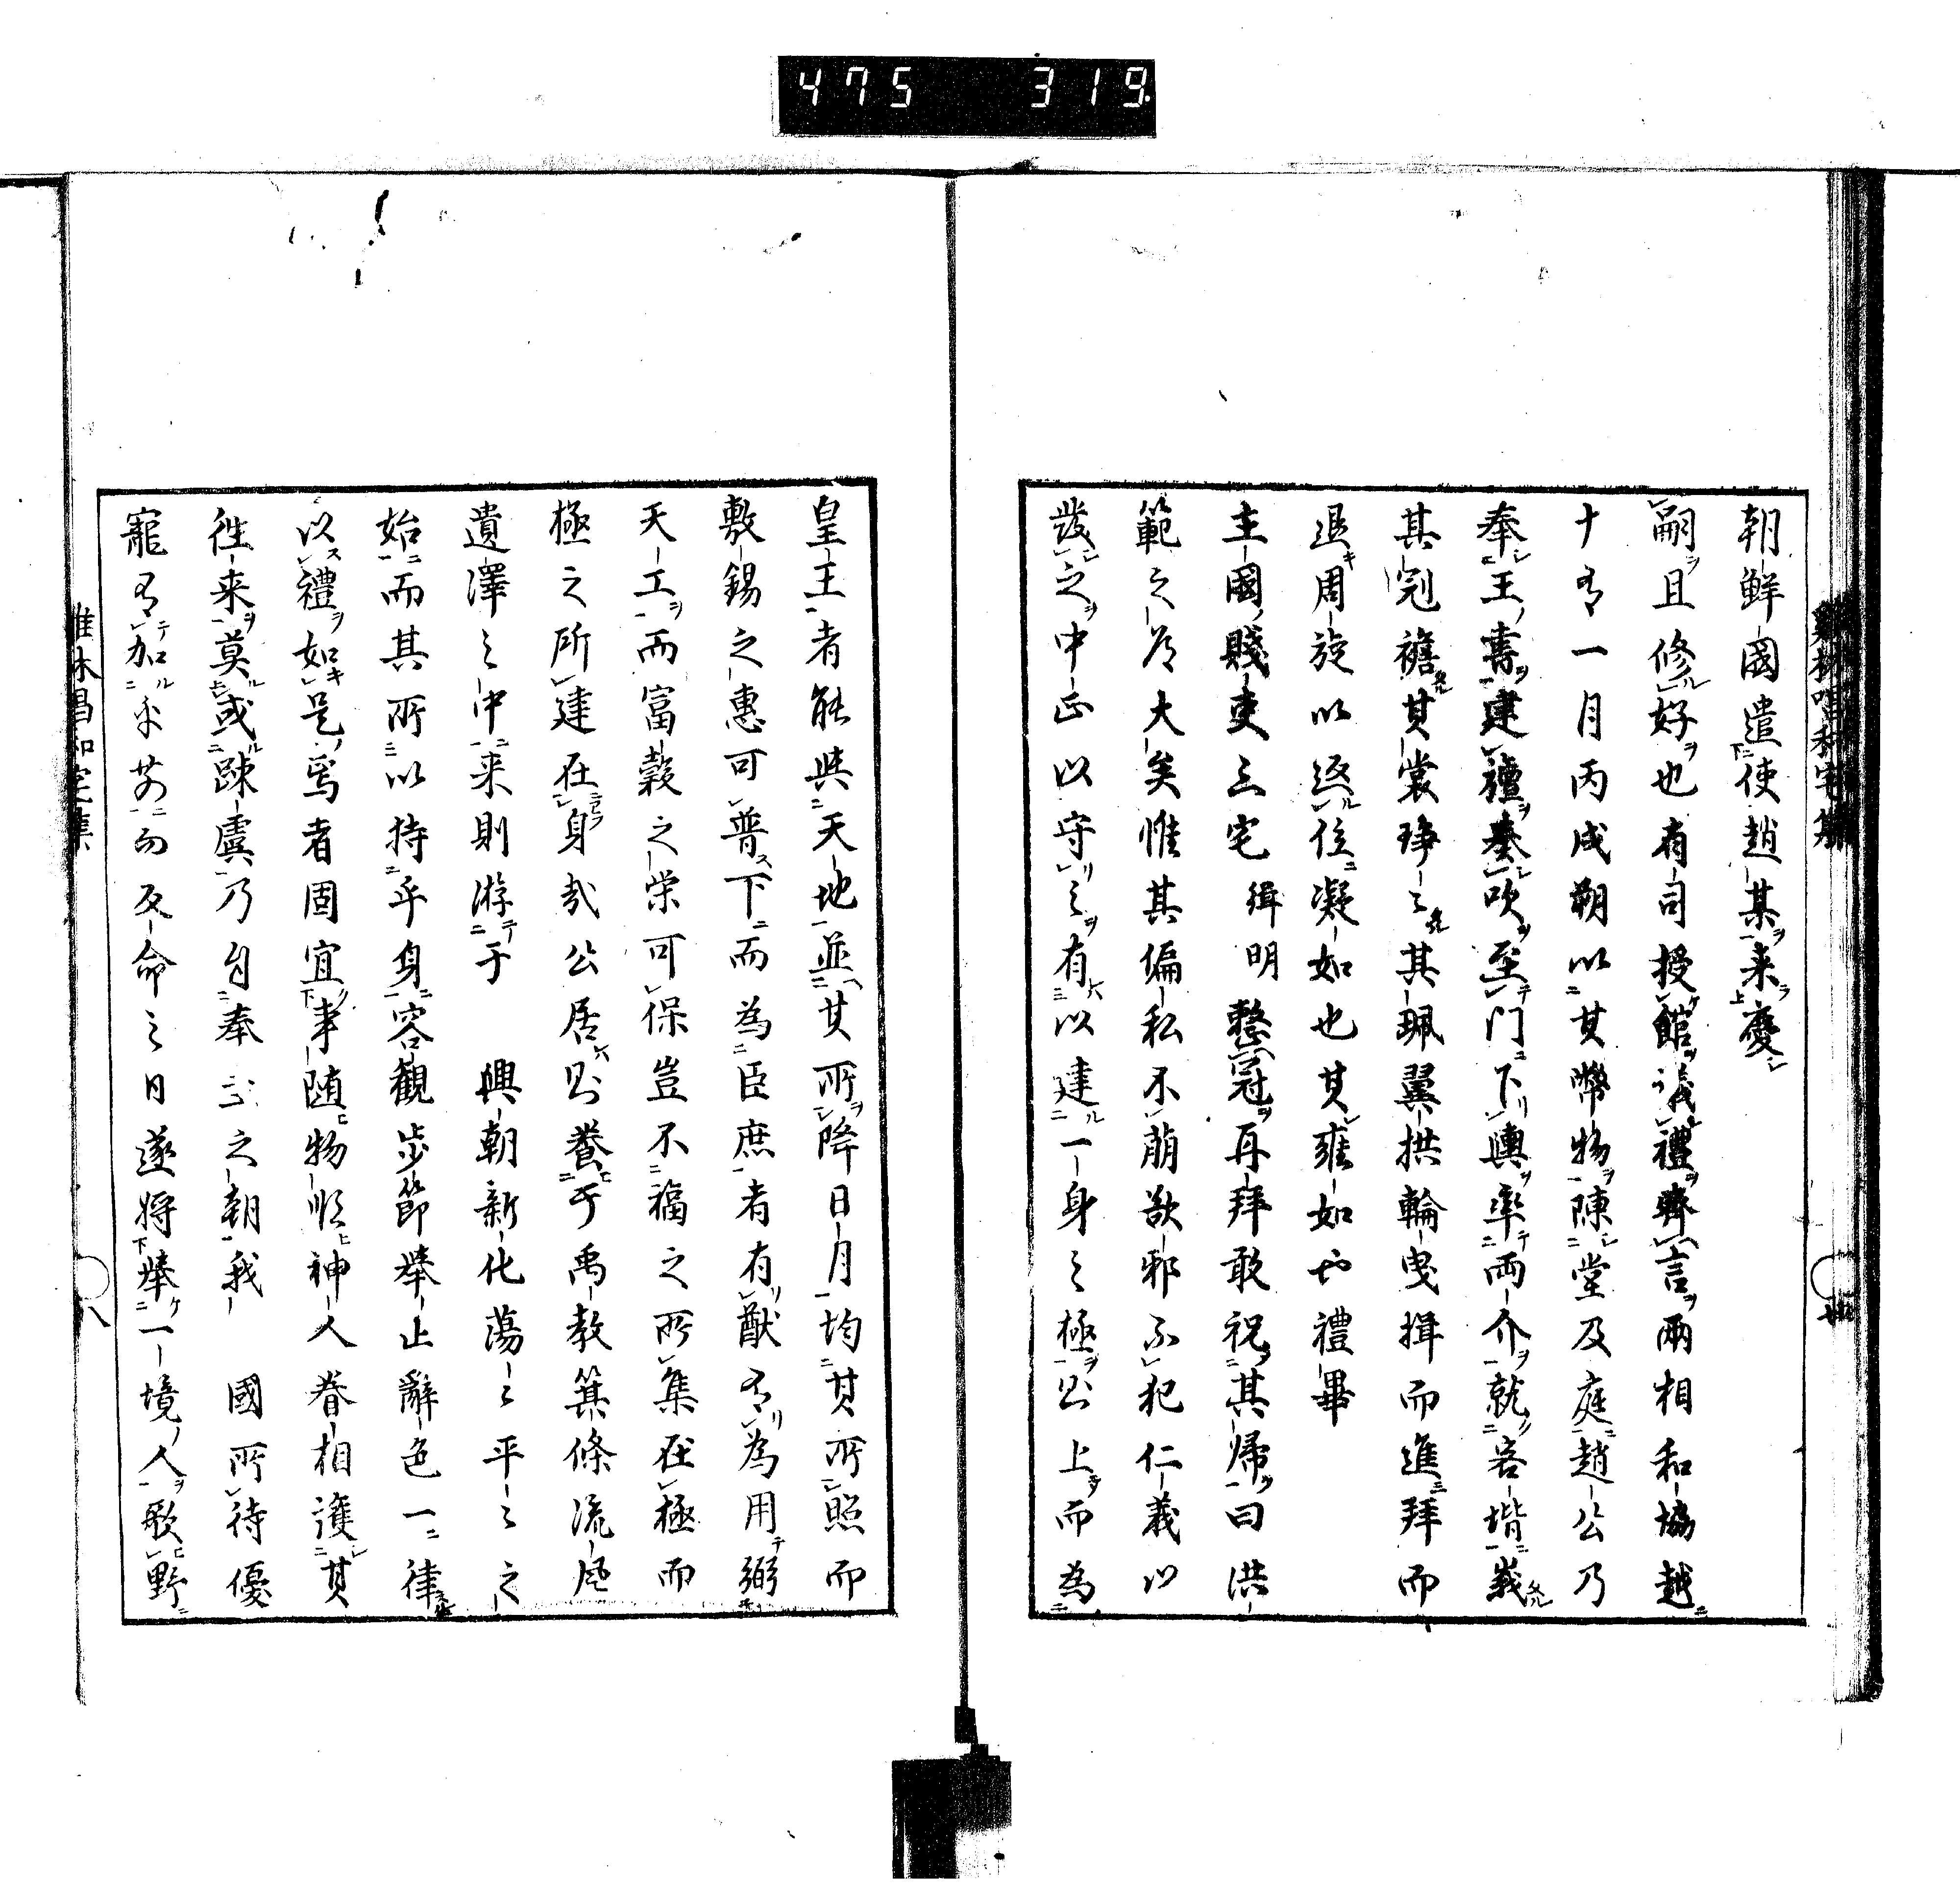 475 319
朝鮮國遣使趙某来慶
嗣且修好也有司授館議禮齊言兩相和協越
十有一月丙戌朔以其幣物陳堂及庭趙公乃
奉王書建禮奏吹至門下輿率兩介就客堦峩
其冠襜其裳琤々其珮翼拱輪曳揖而進拜而
退周旋以返位凝如也其雍如也禮畢
主國賤吏三宅緝明整冠再拜敢祝其歸曰洪
範之道大矣惟其偏私不萠欲邪不犯仁義以
發之中正以守之有以建一身之極公上而為
皇王者能與天地並其所降日月均其所照而
敷錫之惠可普下而為臣庶者有猷有為用弼
天工而富穀之榮可保豈不福之所集在極而
極之所建在身哉公居則養于禹教箕條流風
遺澤之中来則游于 興朝新化蕩々平々之
始而其所以持乎身容觀步節舉止辭色一律
以禮如是焉者固宜事随物順神人眷相護其
往来莫或踈虞乃自奉之朝我 國所待優
寵有加而反命之日遂将舉一境人歌野
鷄林唱和定集
八